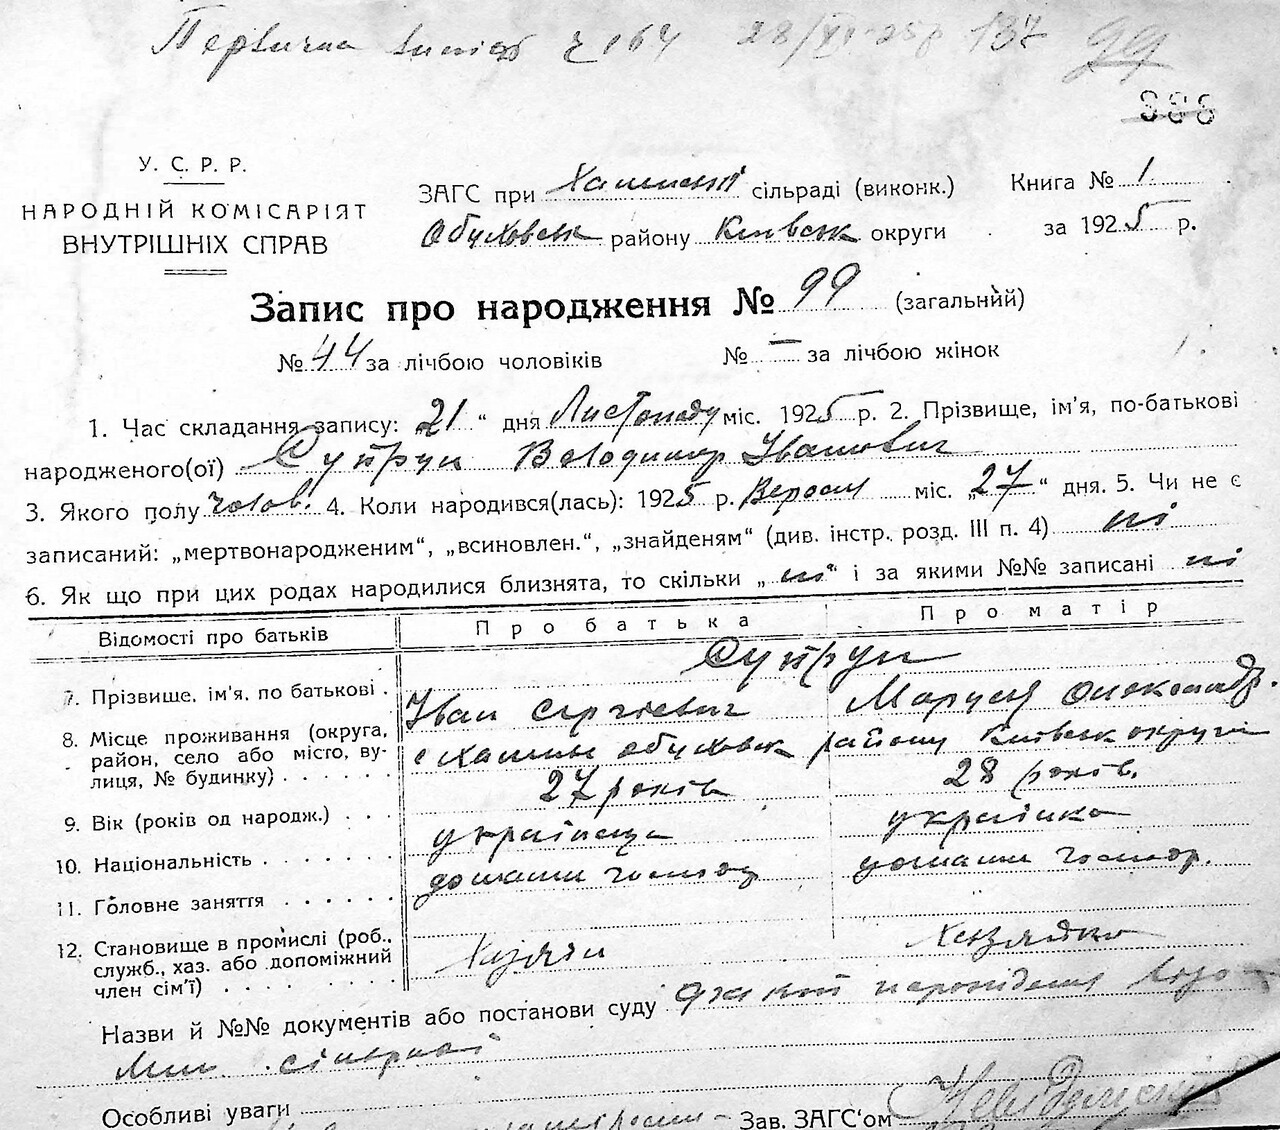 Первична № 164 28/XI-25р 137 99
888
У. С. Р. Р.
НАРОДНІЙ КОМІСАРІЯТ
ВНУТРІШНІХ СПРАВ
ЗАГС при сільраді (виконк.) Книга № 1
Обуховськ району Київськ округи за 1925 р.
Запис про народження № 99 (загальний)
№ 44 за лічбою чоловіків № — за лічбою жінок
1. Час складання запису: 21 “ дня Листопаду міс. 1925 р. 2. Прізвище, ім'я, по-батькові
народженого(ої) Супрун Володимир Іванович
3. Якого полу чолов. 4. Коли народився(лась): 1925 р. Вересня міс. „27“ дня. 5. Чи не є
записаний: „мертвонародженим“, „всиновлен.“, „знайденям“ (див. інстр. розд. III п. 4) ні
6. Як що при цих родах народилися близнята, то скільки „ ні “ і за якими №№ записані ні
Відомості про батьків Про батька Про матір
7. Прізвище, ім'я, по батькові . Супрун
Іван Сергієвич Маруся Олександр.
8. Місце проживання (округа,
район, село або місто, ву-
лиця, № будинку) . . . . . с Обуховськ району Київськ округи
9. Вік (років од народж.) . . . 27 років 28 років.
10. Національність . . . . . . . українець українка
11. Головне заняття . . . . . . домашн господар домашн господр.
12. Становище в промислі (роб.,
служб., хаз. або допоміжний
член сім'ї) . . . . . . . . . Хазяїн Хазяйка
Назви й №№ документів або постанови суду
Особливі уваги Зав. ЗАГС'ом